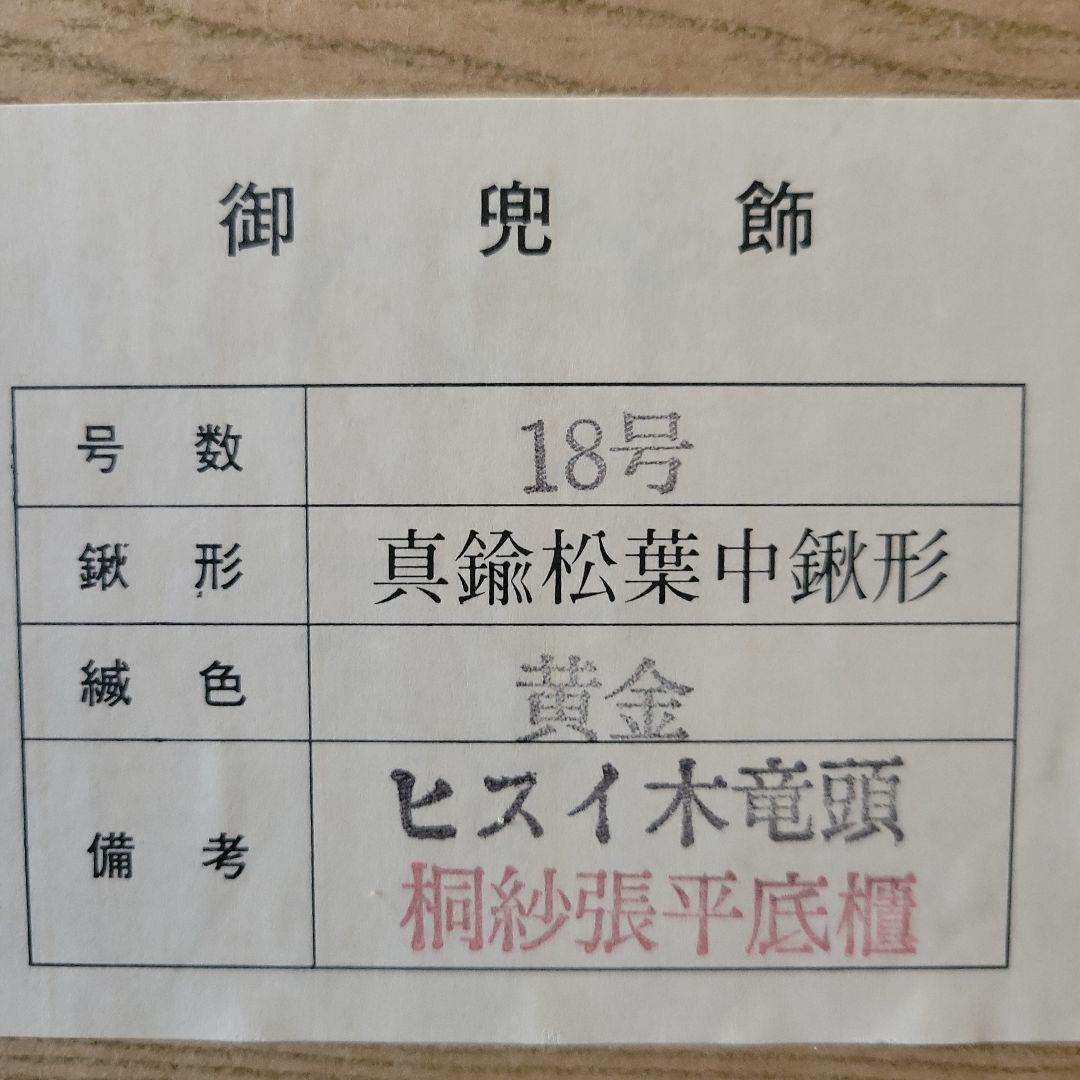 御兜飾
号数 18号
鍬形 真鍮松葉中鍬形
縅色 黄金
備考 ヒスイ木竜頭
桐紗張平底櫃